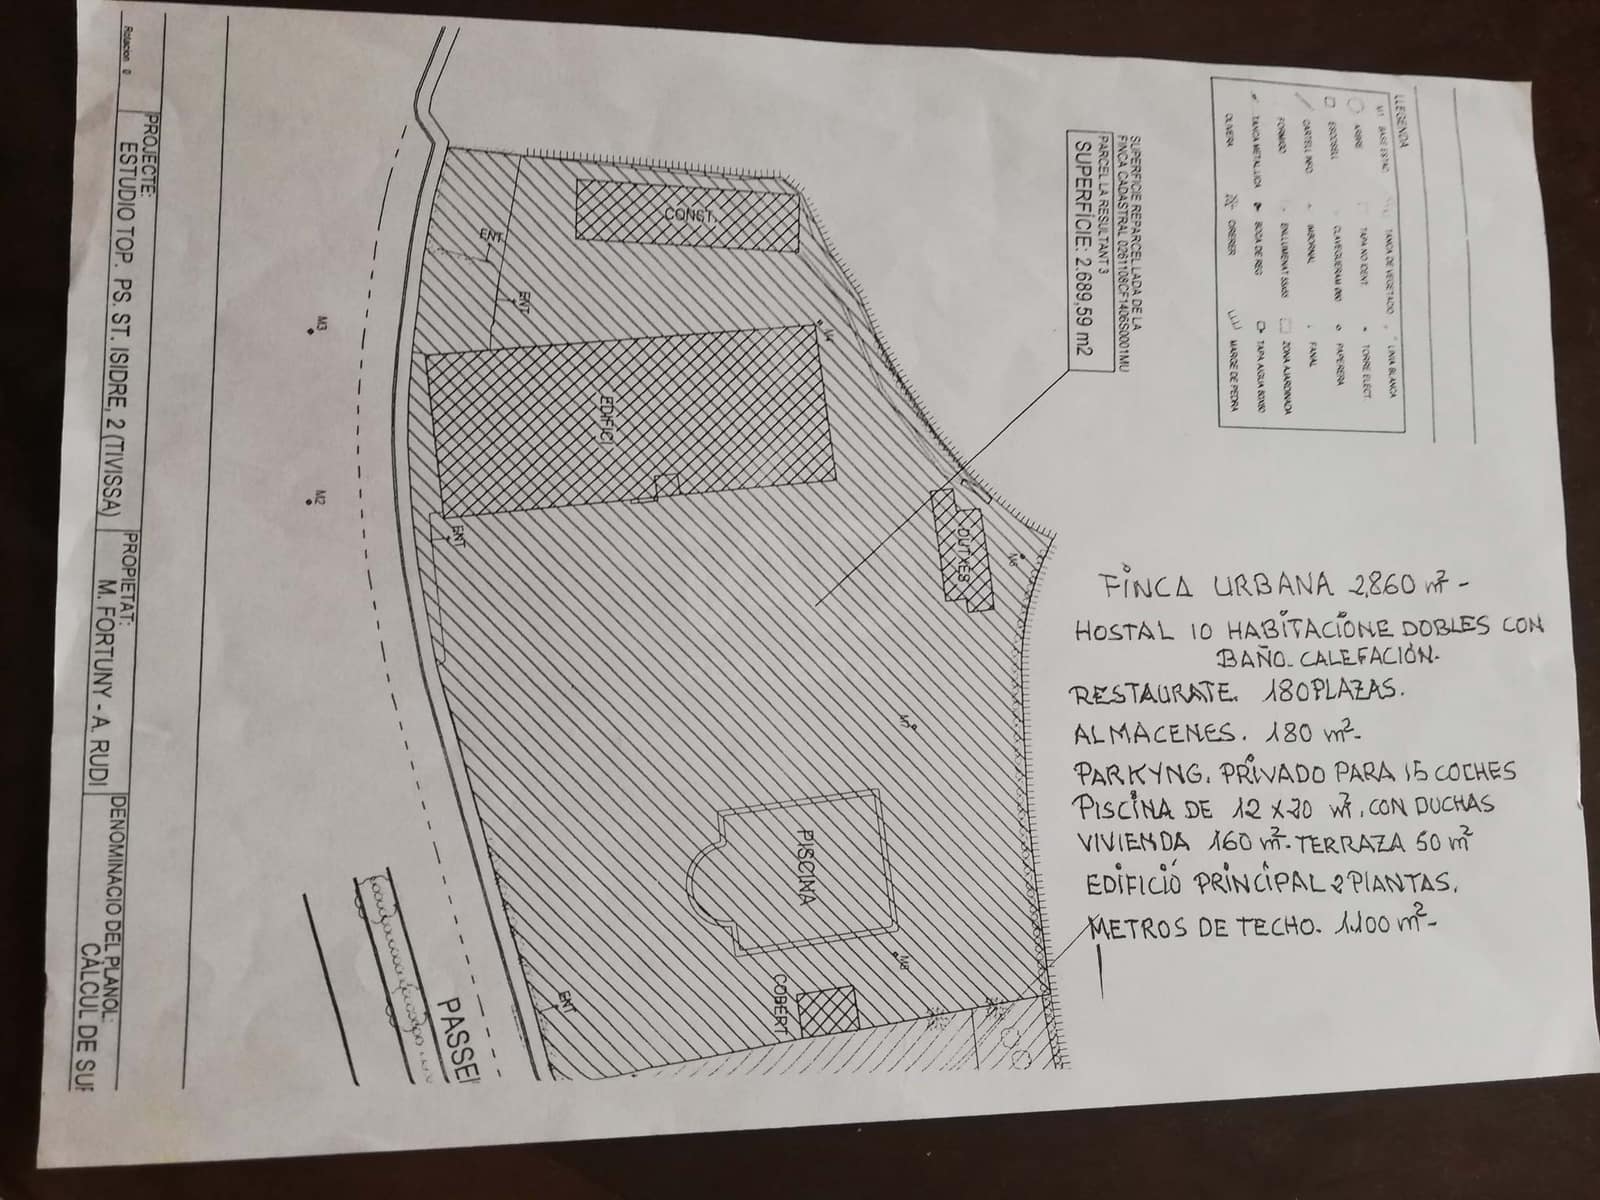 LLEGENDA
M1 BASE ESTAC.
TANCA DE VEGETACIO
LINIA BLANCA
ARBRE
TAPA NO IDENT.
TORRE ELECT.
ESCOSELL
CLAVEGUERAM Ø60
PAPERERA
CARTELL INFO
IMBORNAL
FANAL
FORMIGO
ENLLUMENAT 55x55
ZONA AJARDINADA
TANCA METAL.LICA
BOCA DE REG
TAPA AIGUA 80x80
OLIVERA
CIRERER
MARGE DE PEDRA
SUPERFICIE REPARCEL.LADA DE LA
FINCA CADASTRAL 0261108CF1406S0001MU
PARCEL.LA RESULTANT 3
SUPERFÍCIE: 2.689,59 m2
CONST.
ENT
ENT
EDIFICI
ENT
DUTXES
PISCINA
COBERT
ENT
M4
M6
M7
M8
M3
M2
PASSEI
FINCA URBANA 2,860 m² -
HOSTAL 10 HABITACIONE DOBLES CON
BAÑO. CALEFACIÓN.
RESTAURATE. 180 PLAZAS.
ALMACENES. 180 m².
PARKYNG. PRIVADO PARA 15 COCHES
PISCINA DE 12 X 20 m². CON DUCHAS
VIVIENDA 160 m². TERRAZA 50 m²
EDIFICIÓ PRINCIPAL 2 PLANTAS.
METROS DE TECHO. 1.100 m² -
Rotacion 0
PROJECTE:
ESTUDIO TOP. PS. ST. ISIDRE, 2 (TIVISSA)
PROPIETAT:
M. FORTUNY - A. RUDI
DENOMINACIO DEL PLANOL:
CÀLCUL DE SUP